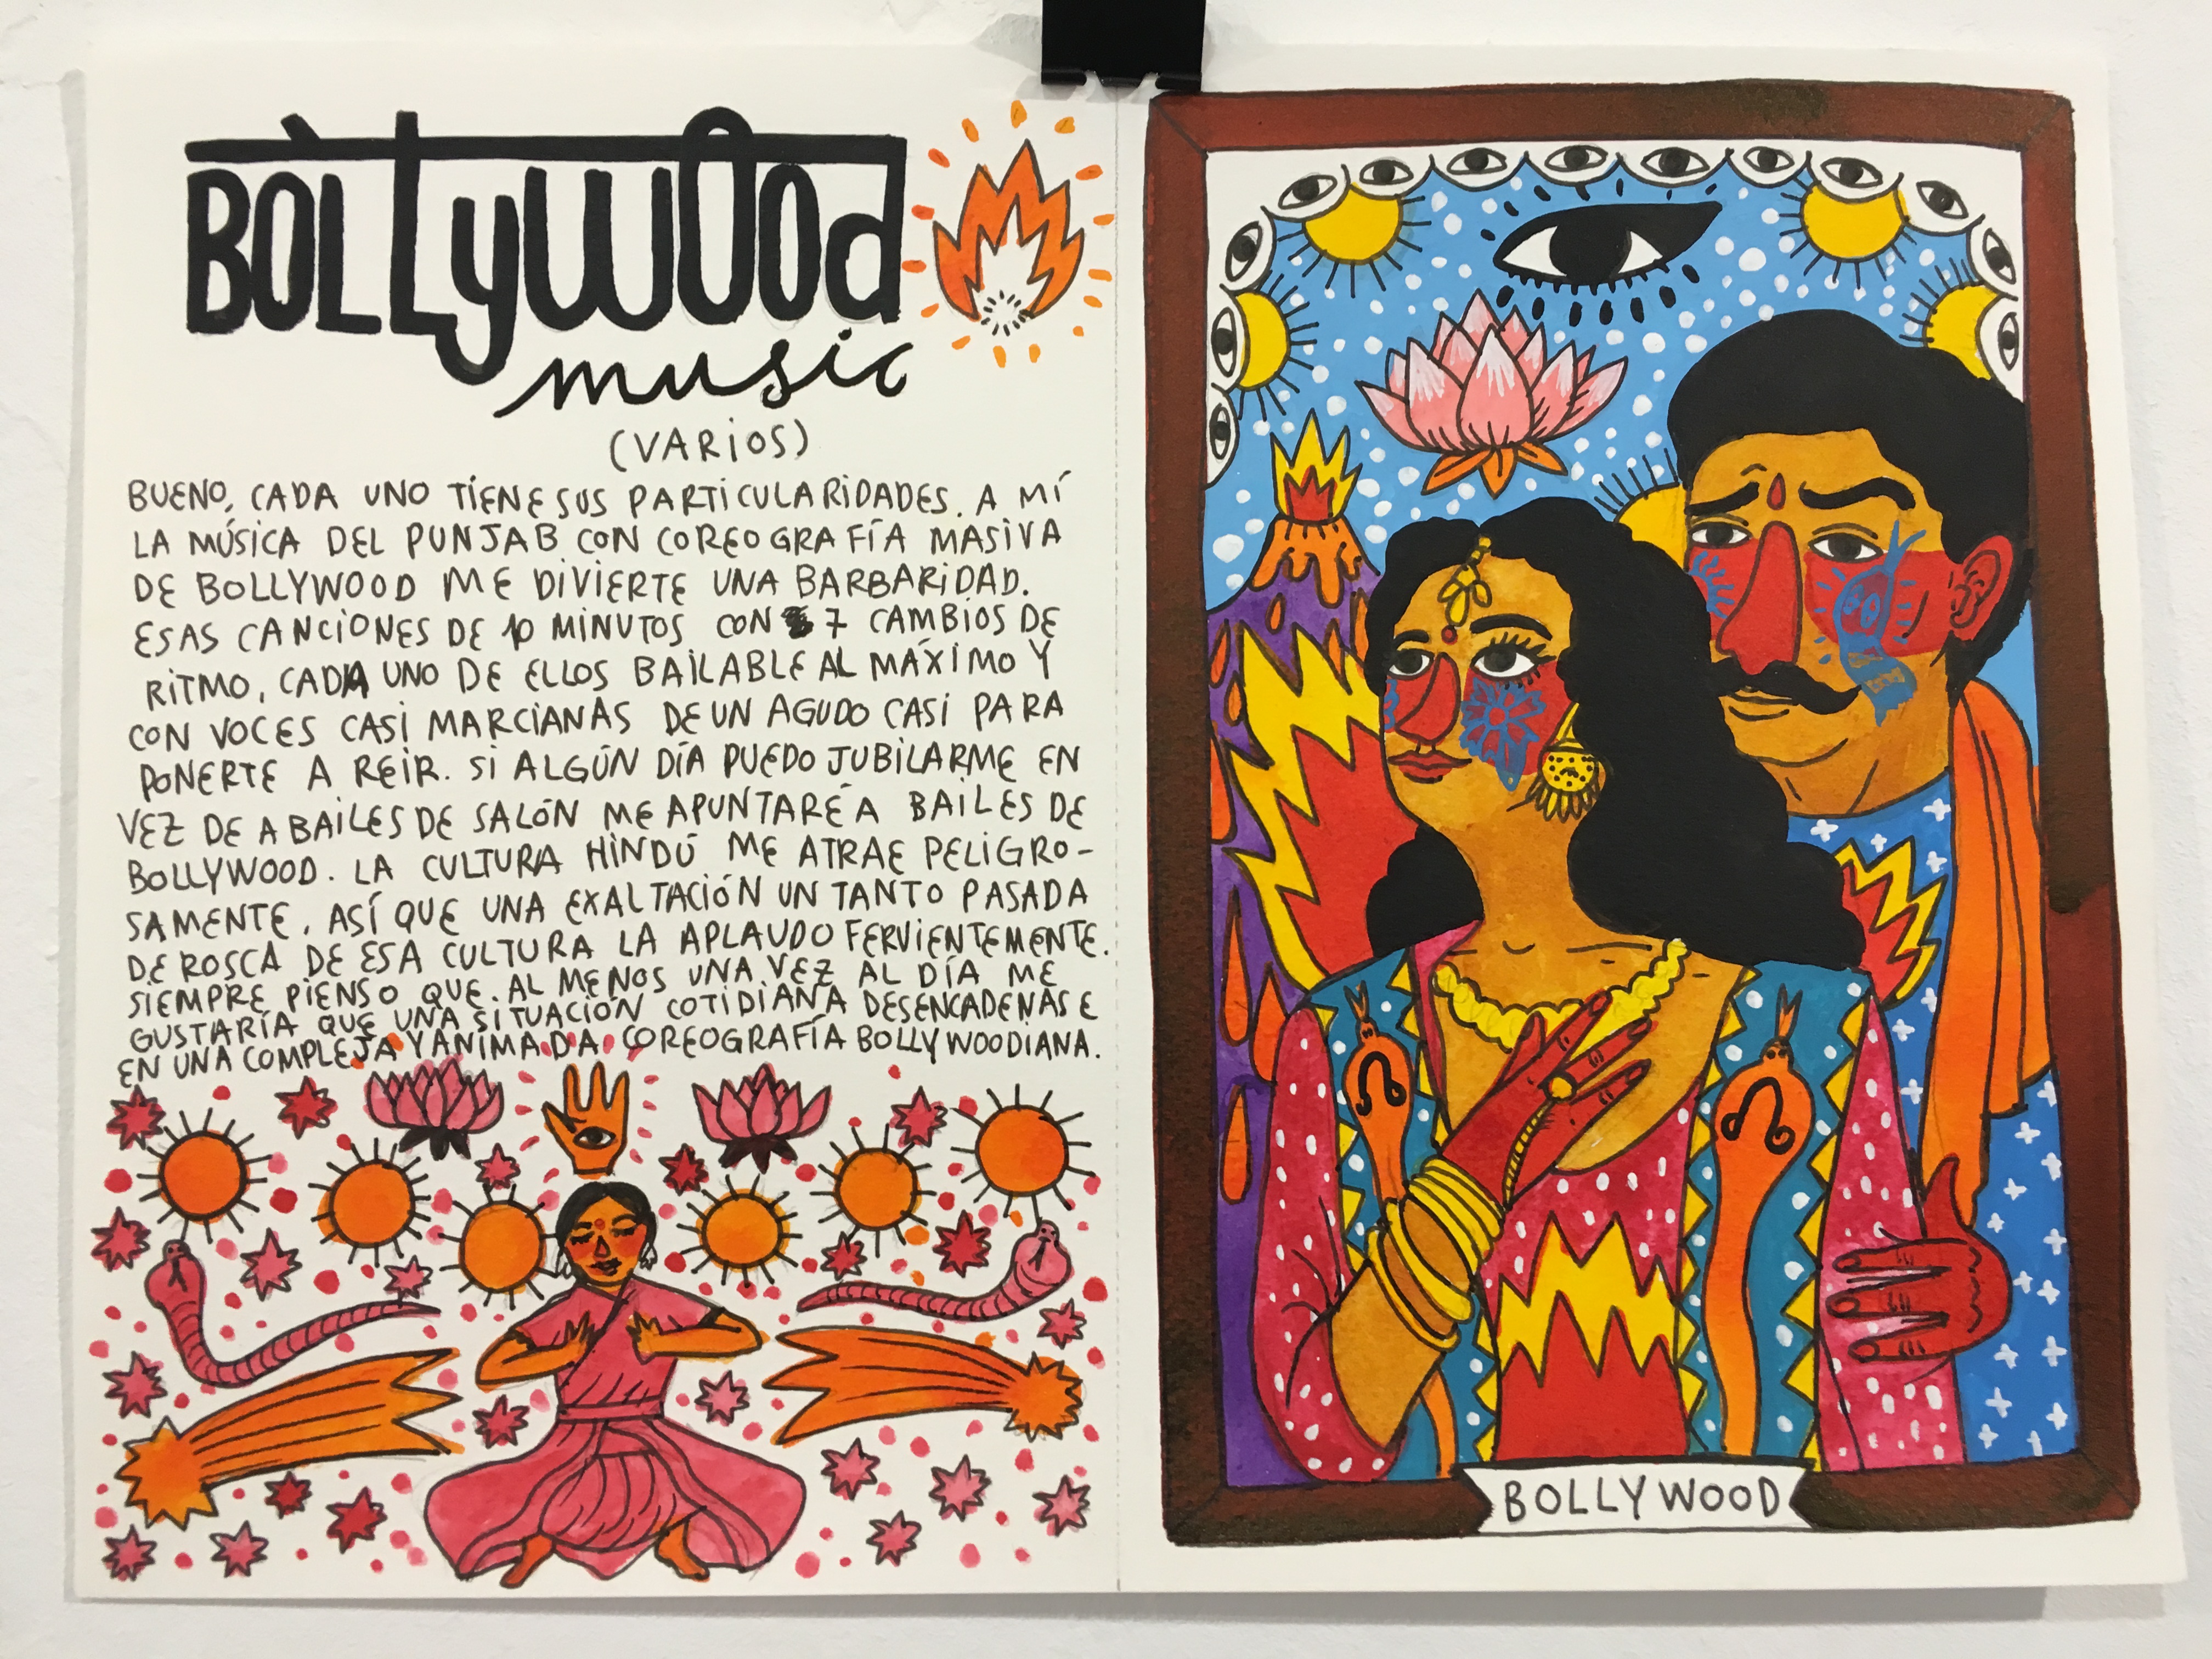 BOLLYWOOD
music
(VARIOS)
BUENO, CADA UNO TIENE SUS PARTICULARIDADES. A MÍ
LA MÚSICA DEL PUNJAB CON COREOGRAFÍA MASIVA
DE BOLLYWOOD ME DIVIERTE UNA BARBARIDAD.
ESAS CANCIONES DE 10 MINUTOS CON 7 CAMBIOS DE
RITMO, CADA UNO DE ELLOS BAILABLE AL MÁXIMO Y
CON VOCES CASI MARCIANAS DE UN AGUDO CASI PARA
PONERTE A REIR. SI ALGÚN DÍA PUEDO JUBILARME EN
VEZ DE A BAILES DE SALÓN ME APUNTARÉ A BAILES DE
BOLLYWOOD. LA CULTURA HINDÚ ME ATRAE PELIGRO-
SAMENTE, ASÍ QUE UNA EXALTACIÓN UN TANTO PASADA
DE ROSCA DE ESA CULTURA LA APLAUDO FERVIENTEMENTE.
SIEMPRE PIENSO QUE AL MENOS UNA VEZ AL DÍA ME
GUSTARÍA QUE UNA SITUACIÓN COTIDIANA DESENCADENASE
EN UNA COMPLEJA Y ANIMADA COREOGRAFÍA BOLLYWOODIANA.
BOLLYWOOD